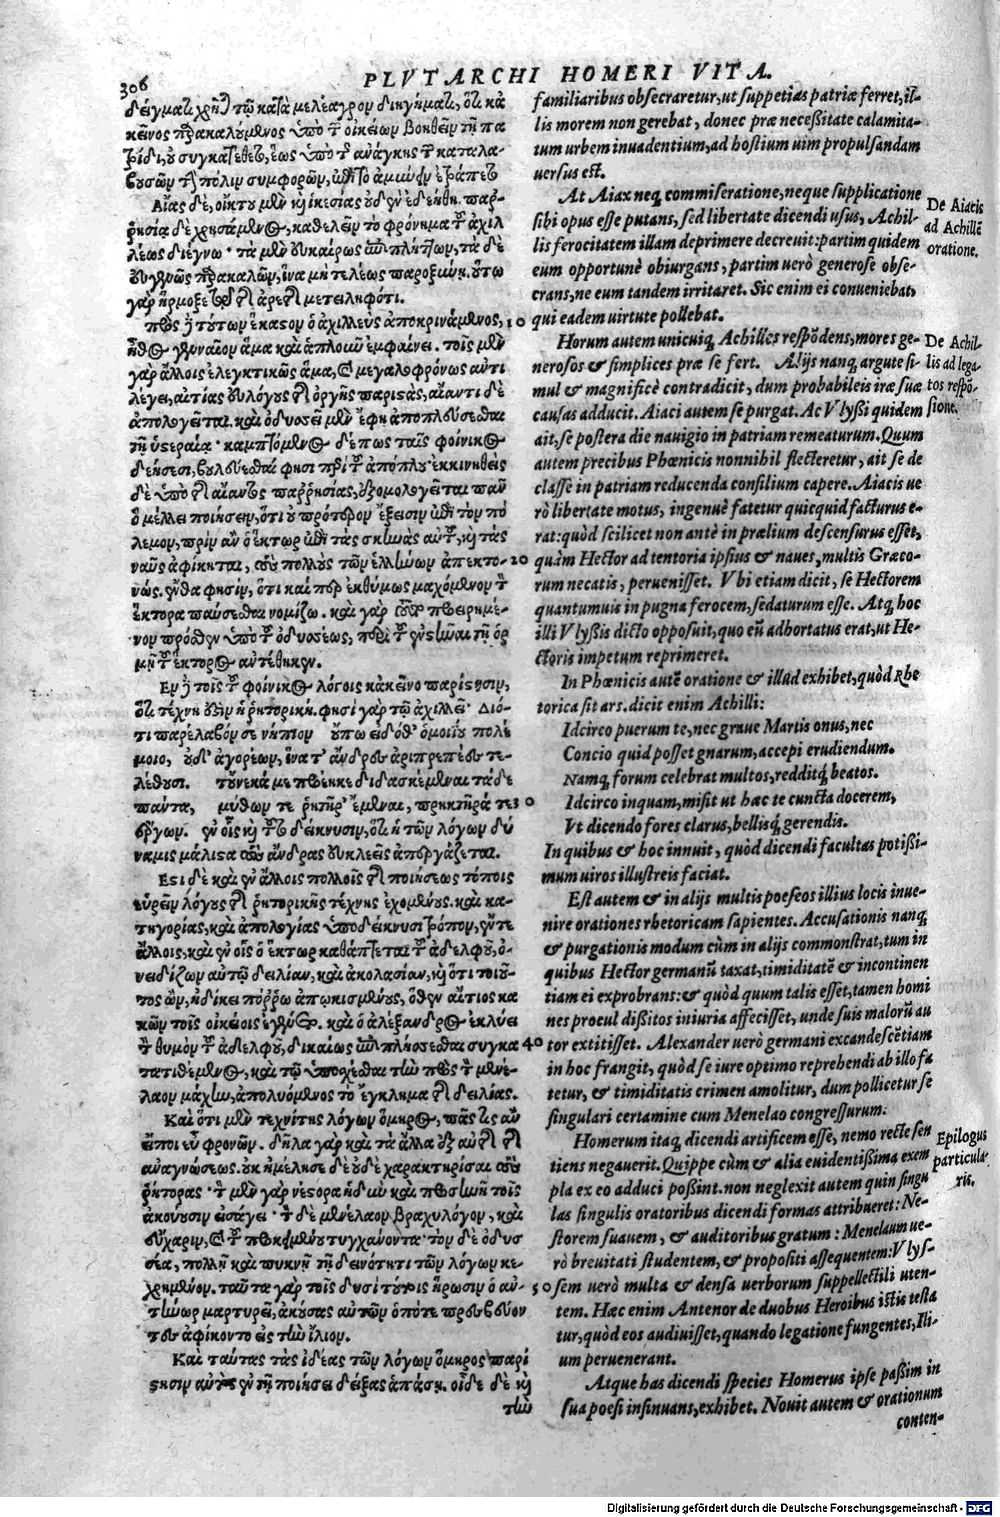 306
PLVTARCHI HOMERI VITA.
δείγματι χρῆται τῷ κατὰ μελέαγρον διηγήματι, ὅτι κἀ
κεῖνος παρακαλούμενος ὑπὸ τῶν οἰκείων βοηθεῖν τῇ πα
τρίδι, οὐ συγκατέθετο, ἕως ὑπὸ τῆς ἀνάγκης τῶν καταλα
βουσῶν τὴν πόλιν συμφορῶν, ἐπὶ τὸ ἀμύνειν ἐτράπετο
Αἴας δὲ, οἴκτου μὲν καὶ ἱκεσίας οὐδὲν ἐδεήθη. παρ-
ρησίᾳ δὲ χρησάμενος, καθελεῖν τὸ φρόνημα τοῦ ἀχιλ
λέως διέγνω· τὰ μὲν εὐκαίρως ἐπιπλήττων, τὰ δὲ
εὐγενῶς παρακαλῶν, ἵνα μὴ τελέως παροξυνῃ. οὕτω
γὰρ ἥρμοζε τῷ τῆς ἀρετῆς μετειληφότι.
πρὸς δὲ τούτων ἕκαστον ὁ ἀχιλλεὺς ἀποκρινάμενος, 10
ἦθος γενναῖον ἅμα καὶ ἁπλοῦν ἐμφαίνει. τοῖς μὲν
γὰρ ἄλλοις ἐλεγκτικῶς ἅμα, καὶ μεγαλοφρόνως ἀντι
λέγει, αἰτίας εὐλόγους τῆς ὀργῆς παριστὰς, αἴαντι δὲ
ἀπολογεῖται. καὶ ὀδυσσεῖ μὲν ἔφη ἀποπλεύσεσθαι
τῇ ὑστεραίᾳ· καμπτόμενος δέ πως ταῖς φοίνικος
δεήσεσι, βουλεύεσθαι φησὶ περὶ τοῦ ἀπόπλου· ἐκκινηθεὶς
δὲ ὑπὸ τῆς αἴαντος παῤῥησίας, ἐξομολογεῖται πᾶν
ὃ μέλλει ποιήσειν, ὅτι οὐ πρότερον ἔξεισιν ἐπὶ τὸν πό
λεμον, πρὶν ἂν ὁ ἕκτωρ ἐπὶ τὰς σκηνὰς αὐτοῦ, καὶ τὰς
ναῦς ἀφίκηται, τοὺς πολλοὺς τῶν ἑλλήνων ἀπεκτο- 20
νώς. ἔνθα φησὶν, ὅτι καί περ ἐκθύμως μαχόμενον τὸν
ἕκτορα παύσεσθαι νομίζω. καὶ γὰρ τοῦτο προειρημέ-
νον πρόσθεν ὑπὸ τοῦ ὀδυσσέως, περὶ τοῦ ἐνστῆναι τῇ ὁρ
μῇ τοῦ ἕκτορος αὐτέθηκεν.
Εν δὲ τοῖς τοῦ φοίνικος λόγοις κἀκεῖνο παρίστησιν,
ὅτι τέχνη ἐστὶν ἡ ῥητορική. φησὶ γὰρ τῷ ἀχιλλεῖ· Διό-
τι παρέλαβόν σε νήπιον οὔπω εἰδόθ᾽ ὁμοιΐου πολέ
μοιο, οὐδ᾽ ἀγορέων, ἵνα τ᾽ ἄνδρες ἀριπρεπέες τε-
λέθουσι. τοὔνεκά με προέηκε διδασκέμεναι τάδε
πάντα, μύθων τε ῥητῆρ᾽ ἔμεναι, πρηκτῆρά τε 30
ἔργων. ἐν οἷς καὶ τοῦτο δείκνυσιν, ὅτι ἡ τῶν λόγων δύ
ναμις μάλιστα τοὺς ἄνδρας εὐκλεεῖς ἀπεργάζεται.
Εστι δὲ καὶ ἐν ἄλλοις πολλοῖς τῆς ποιήσεως τόποις
εὑρεῖν λόγους τῆς ῥητορικῆς τέχνης ἐχομένους. καὶ κα-
τηγορίας, καὶ ἀπολογίας ὑποδείκνυσι τρόπον, ἔν τε
ἄλλοις, καὶ ἐν οἷς ὁ ἕκτωρ καθάπτεται τοῦ ἀδελφοῦ, ὀ-
νειδίζων αὐτῷ δειλίαν, καὶ ἀκολασίαν, καὶ ὅτι τοιοῦ-
τος ὢν, ἠδίκει πόῤῥω ἀπῳκισμένους, ὅθεν αἴτιος κα
κῶν τοῖς οἰκείοις ἐγένετο. καὶ ὁ ἀλέξανδρος ἐκλύει
τὸν θυμὸν τοῦ ἀδελφοῦ, δικαίως ἐπιπλήσσεσθαι συγκα 40
τατιθέμενος, καὶ τῷ ὑποσχέσθαι τὴν πρὸς τὸν μενέ-
λαον μάχην, ἀπολυόμενος τὸ ἔγκλημα τῆς δειλίας.
Καὶ ὅτι μὲν τεχνίτης λόγων ὅμηρος, πᾶς τις ἂν
εἴποι εὖ φρονῶν. δῆλα γὰρ καὶ τὰ ἄλλα ἐξ αὐτῆς τῆς
ἀναγνώσεως. οὐκ ἠμέλησε δὲ οὐδὲ χαρακτηρίσαι τοὺς
ῥήτορας· τὸν μὲν γὰρ νέστορα ἡδὺν καὶ προσηνῆ τοῖς
ἀκούουσιν εἰσάγει· τὸν δὲ μενέλαον βραχυλόγον, καὶ
εὔχαριν, καὶ τοῦ προκειμένου τυγχάνοντα· τὸν δὲ ὀδυσ
σέα, πολλῇ καὶ πυκνῇ τῇ δεινότητι τῶν λόγων κε-
χρημένον. ταῦτα γὰρ τοῖς δυσὶ τούτοις ἥρωσιν ὁ ἀν- 50
τήνωρ μαρτυρεῖ, ἀκούσας αὐτῶν ὁπότε πρεσβεύον
τες ἀφίκοντο εἰς τὴν ἴλιον.
Καὶ ταύτας τὰς ἰδέας τῶν λόγων ὅμηρος παρί
στησιν αὐτὸς ἐν τῇ ποιήσει δείξας ἁπάσῃ. οἶδε δὲ καὶ
τὴν
familiaribus obsecraretur, ut suppetias patriæ ferret, il-
lis morem non gerebat, donec præ necessitate calamita-
tum urbem inuadentium, ad hostium uim propulsandam
uersus est.
At Aiax neq; commiseratione, neque supplicatione
sibi opus esse putans, sed libertate dicendi usus, Achil-
lis ferocitatem illam deprimere decreuit: partim quidem
eum opportunè obiurgans, partim uerò generose obse-
crans, ne eum tandem irritaret. Sic enim ei conueniebat,
qui eadem uirtute pollebat.
De Aiacis
ad Achillẽ
oratione.
Horum autem unicuiq; Achilles respõdens, mores ge-
nerosos & simplices præ se fert. Alijs nanq; argute si-
mul & magnificè contradicit, dum probabileis iræ suæ
causas adducit. Aiaci autem se purgat. Ac Vlyssi quidem
ait, se postera die nauigio in patriam remeaturum. Quum
autem precibus Phœnicis nonnihil flecteretur, ait se de
classe in patriam reducenda consilium capere. Aiacis ue
rò libertate motus, ingenuè fatetur quicquid facturus e-
rat: quòd scilicet non antè in prælium descensurus esset,
quàm Hector ad tentoria ipsius & naues, multis Græco-
rum necatis, peruenisset. Vbi etiam dicit, se Hectorem
quantumuis in pugna ferocem, sedaturum esse. Atq; hoc
illi Vlyssis dicto opposuit, quo eũ adhortatus erat, ut He-
ctoris impetum reprimeret.
De Achil-
lis ad lega-
tos respõ-
sione.
In Phœnicis autẽ oratione & illud exhibet, quòd Rhe
torica sit ars. dicit enim Achilli:
Idcirco puerum te, nec graue Martis onus, nec
Concio quid posset gnarum, accepi erudiendum.
Namq; forum celebrat multos, redditq; beatos.
Idcirco inquam, misit ut hæc te cuncta docerem,
Vt dicendo fores clarus, bellisq; gerendis.
In quibus & hoc innuit, quòd dicendi facultas potissi-
mum uiros illustreis faciat.
Est autem & in alijs multis poeseos illius locis inue-
nire orationes rhetoricam sapientes. Accusationis nanq;
& purgationis modum cùm in alijs commonstrat, tum in
quibus Hector germanũ taxat, timiditatẽ & incontinen
tiam ei exprobrans: & quòd quum talis esset, tamen homi
nes procul dissitos iniuria affecisset, unde suis malorũ au
tor extitisset. Alexander uerò germani excandescẽtiam
in hoc frangit, quòd se iure optimo reprehendi ab illo fa
tetur, & timiditatis crimen amolitur, dum pollicetur se
singulari certamine cum Menelao congressurum.
Homerum itaq; dicendi artificem esse, nemo recte sen
tiens negauerit. Quippe cùm & alia euidentissima exem
pla ex eo adduci possint. non neglexit autem quin singu
las singulis oratoribus dicendi formas attribueret: Ne-
storem suauem, & auditoribus gratum: Menelaum ue-
rò breuitati studentem, & propositi assequentem: Vlys-
sem uerò multa & densa uerborum suppellectili uten-
tem. Hæc enim Antenor de duobus Heroibus istis testa
tur, quòd eos audiuisset, quando legatione fungentes, Ili-
um peruenerant.
Epilogus
particula
ris.
Atque has dicendi species Homerus ipse passim in
sua poesi insinuans, exhibet. Nouit autem & orationum
conten-
Digitalisierung gefördert durch die Deutsche Forschungsgemeinschaft - DFG